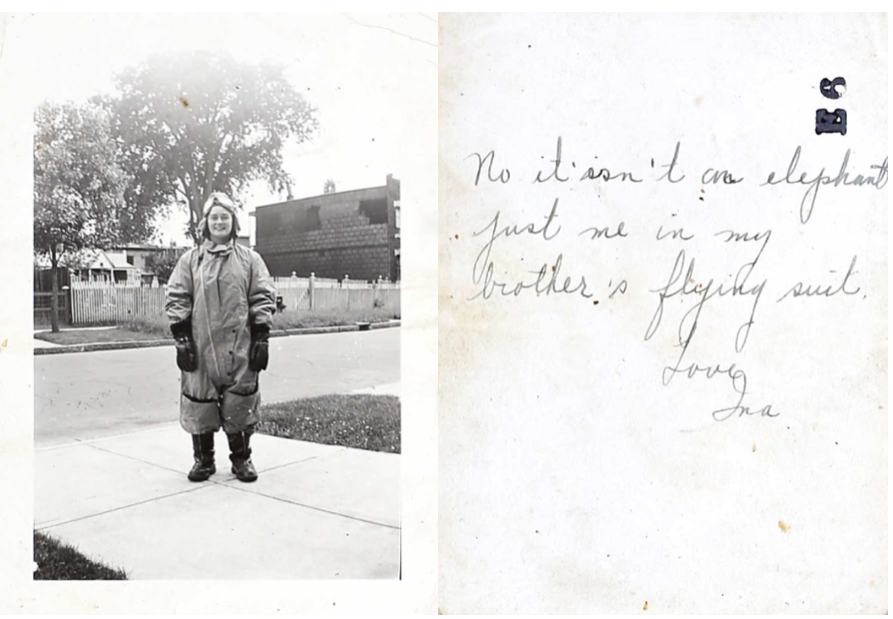 E6
No it isn't an elephant
just me in my
brother's flying suit.
Love
Ina